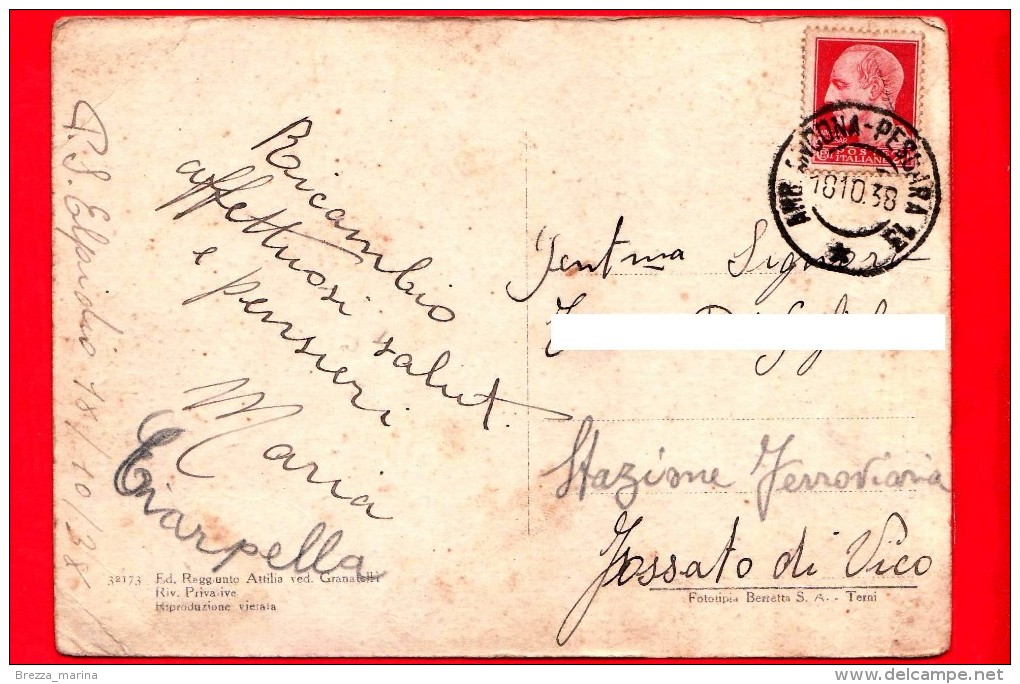 Brezza_marina
P.S. Elpidio 18/10/38
Ricambio
affettuosi saluti
e pensieri
Maria
Ciarpella
32173 Ed. Raggiunto Attilia ved. Granatelli
Riv. Privative
Riproduzione vietata
POSTE
ITALIANE
AMB. ANCONA-PESCARA
18 10.38
Gentma Signora
Stazione Ferroviaria
Fossato di Vico
Fototipia Berretta S. A. - Terni
Brezza_marina
delcampe.net